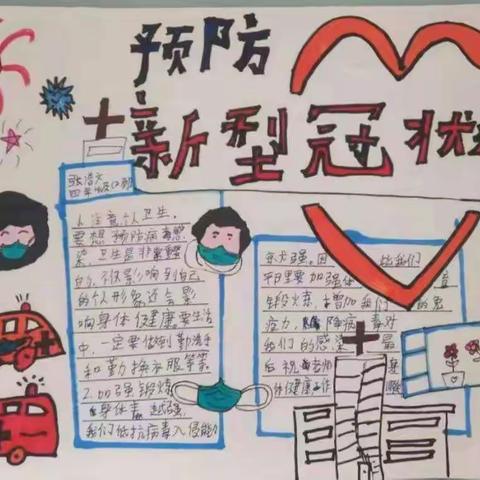 预防
新型冠状
张浩文
四年级(2)班
1.注意个人卫生,
要想预防病毒感
染,卫生是非常重要
的,不仅影响到自己
的个人形象还会影
响身体健康,要生活
中,一定要做到勤洗手
和勤换衣服等等
2.加强锻炼
身体素 越强
我们抵抗病毒入侵能力
就大强。因 此我们
平日里要加强体 育
锻炼,增加我们 的免
疫力,降 病毒对
我们的感染 最
后祝 老师 身
体健康工作